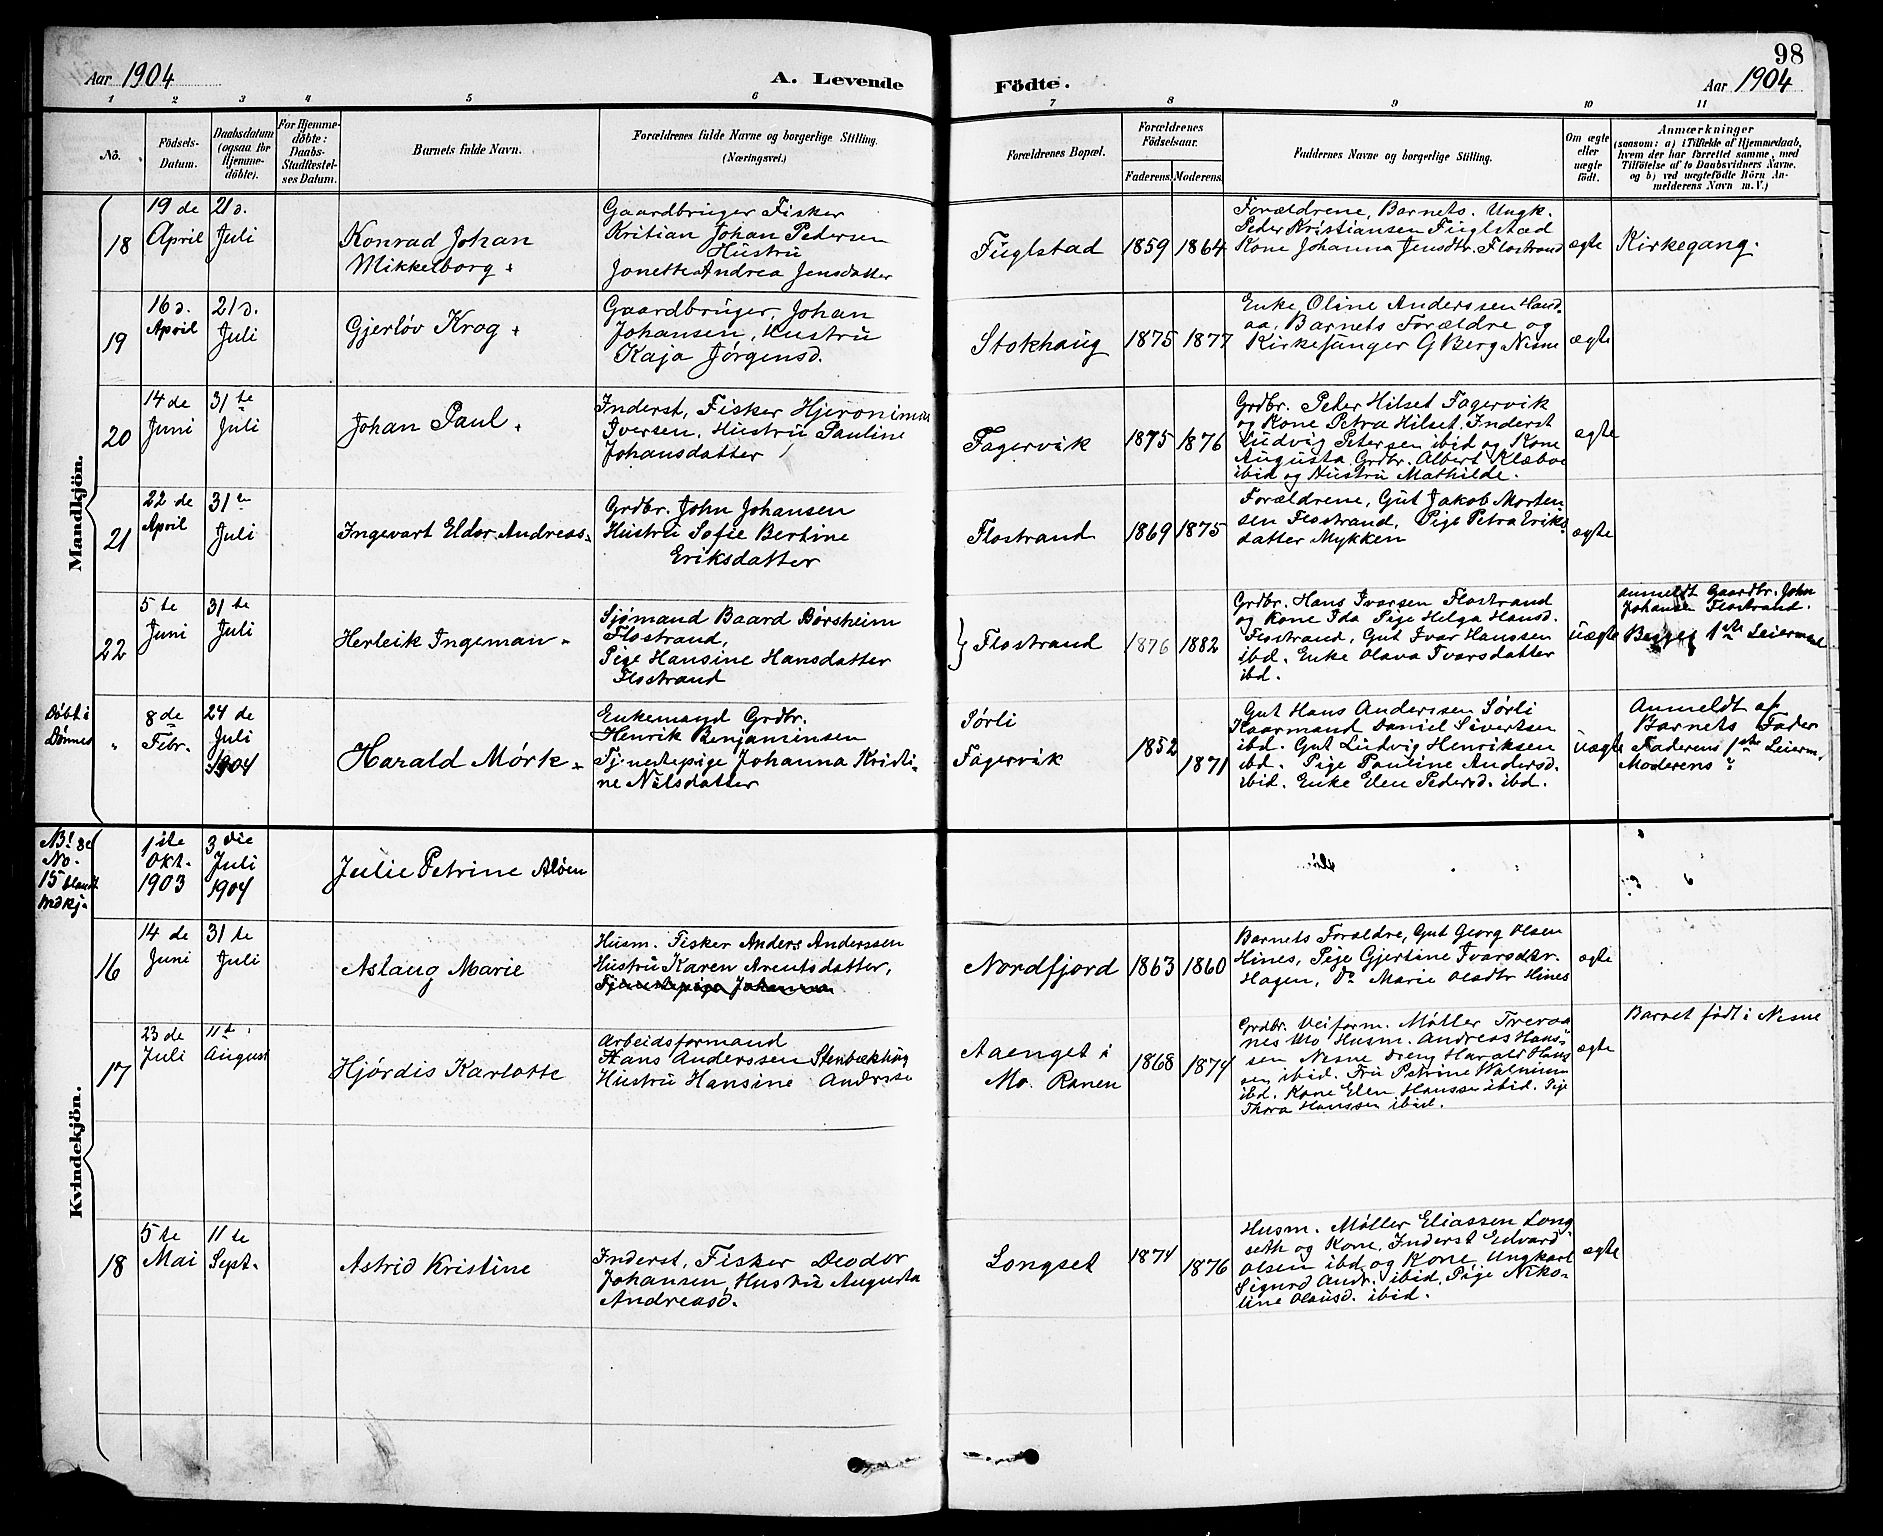 98
Aar 1904
A. Levende
Födte.
Aar 1904
1 2 3 4 5 6 7 8 9 10 11
No.
Födsels-
Datum.
Daabsdatum
(ogsaa for
Hjemme-
döbte).
For Hjemme-
döbte:
Daabs-
Stadfæstel-
ses Datum.
Barnets fulde Navn.
Forældrenes fulde Navne og borgerlige Stilling.
(Næringsvei.)
Forældrenes Bopæl.
Forældrenes
Födselsaar.
Faderens.
Moderens.
Faddernes Navne og borgerlige Stilling.
Om ægte
eller
uægte
født.
Anmærkninger
(saasom: a) i Tilfælde af Hjemmedaab,
hvem der har forrettet samme, med
Tilföielse af to Daabsvidners Navne.
og b) ved uægtefödte Börn An-
melderens Navn m. V.)
Mandkjön.
18
19 de
April
21 d.
Juli
Konrad Johan
Mikkelborg
Gaardbruger Fisker
Kritian Johan Pedersen
Hustru
Jonette Andrea Jensdatter
Fuglstad
1859
1864
Forældrene, Barnets. Ungk.
Peder Kristiansen Fuglstad
Kone Johanna Jensdtr. Flostrand
ægte
Kirkegang.
19
16 d.
April
21 d.
Juli
Gjerløv Krog
Gaardbruger, Johan
Johansen, Hustru
Kaja Jørgensd.
Stokhaug
1875
1877
Enke Oline Anderssen Hand-
aa, Barnets Forældre og
Kirkesunger G Berg Nesne
ægte
20
14 de
Juni
31 te
Juli
Johan Paul
Inderst, Fisker Hjeronimus
Iversen, Hustru Pauline
Johansdatter
Fagervik
1875
1876
Grdbr. Peder Hilset Fagervik
og Kone Petra Hilset. Inderst
Ludvig Petersen ibid og Kone
Augusta. Grdbr. Albert Klæboe
ibid og Hustru Mathilde.
ægte
21
22 de
April
31 te
Juli
Ingevart Eldor Andreas
Grdbr. John Johansen
Hustru Sofie Bertine
Eriksdatter
Flostrand
1869
1875
Forældrene, Gut Jakob Morten-
sen Flostrand, Pige Petra Eriks
datter Mykken
ægte
22
5 te
Juni
31 te
Juli
Herleik Ingeman
Sjømand Baard Børsheim
Flostrand,
Pige Hansine Hansdatter
Flostrand
Flostrand
1876
1882
Grdbr. Hans Ivarsen Flostrand
og Kone Ida Pige Helga Hansd.
Flostrand, Gut Ivar Hanssen
ibd. Enke Olava Ivarsdatter
ibd.
uægte
anmeldt Gaardbr. John
Johansen Flostrand.
Begges 1ste Leiermaal
Døbt i
Dønnes
"
8 de
Febr.
24 de
Juli
1904
Harald Mørk
Enkemand Grdbr.
Henrik Benjaminsen
Tjenestepige Johanna Kristi-
ne Nilsdatter
Sørli
Fagervik
1852
1871
Gut Hans Anderssen Sørli
Kaarmand Daniel Sivertsen
ibd. Gut Ludvig Henriksen
ibd. Pige Pauline Andersd.
ibid. Enke Elen Pedersd. ibd.
uægte
Anmeldt af
Barnets Fader
Faderens 1ste Leierm.
Moderens
Kvindekjön.
No.
15 blandt
Mdkj.
1ste
Okt.
1903
3 die
Juli
1904
Julie Petrine Aløen
16
14 de
Juni
31 te
Juli
Aslaug Marie
Husm. Fisker Anders Anderssen
Hustru Karen Arentsdatter,
Tjenestepige Johanna
Nordfjord
1863
1860
Barnets Forældre, Gut Georg Olsen
Hines, Pige Gjertine Ivarsdtr.
Hagen, Do Marie Olsdtr Hines
ægte
17
23 de
Juli
11 te
August
Hjørdis Karlotte
Arbeidsformand
Hans Anderssen Stenbækhaug
Hustru Hansine Anderse
Aaenget i
Mo. Ranen
1868
1874
Grdbr. Veiform. Møller Treraa
nes Mo Husm. Andreas Hans-
sen Nesne dreng Harald Hans
sen ibid. Fru Petrine Walnum
ibd. Kone Elen Hanssen ibid. Pige
Thora Hanssen ibid.
ægte
Barnet født i Nesne
18
5 te
Mai
11 te
Sept.
Astrid Kristine
Inderst, Fisker Deodor
Johansen, Hustru Augusta
Andreasd.
Longset
1874
1876
Husm. Møller Eliassen Long
seth og Kone. Inderst Edvard
Olsen ibd og Kone. Ungkarl
Sigurd Andr. ibid. Pige Niko-
line Olausd. ibid.
ægte